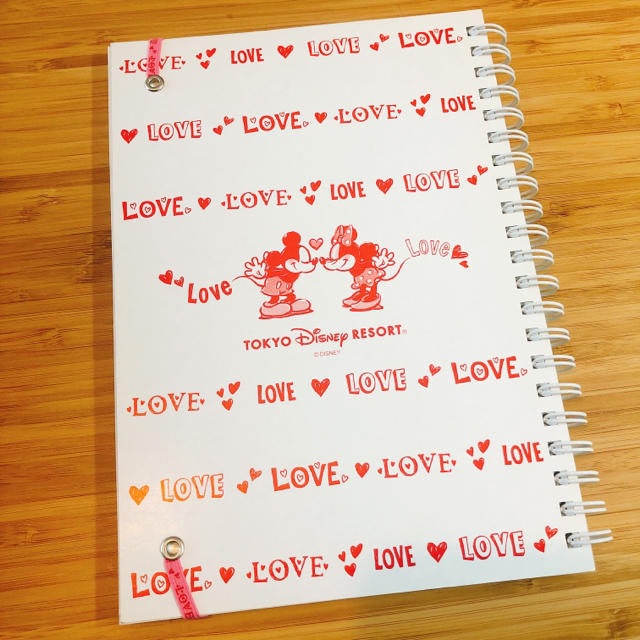 LOVE LOVE LOVE LOVE
LOVE LOVE LOVE LOVE
LOVE LOVE LOVE LOVE
Love Love
TOKYO Disney RESORT®
© DISNEY
LOVE LOVE LOVE LOVE
LOVE LOVE LOVE LOVE
LOVE LOVE LOVE LOVE